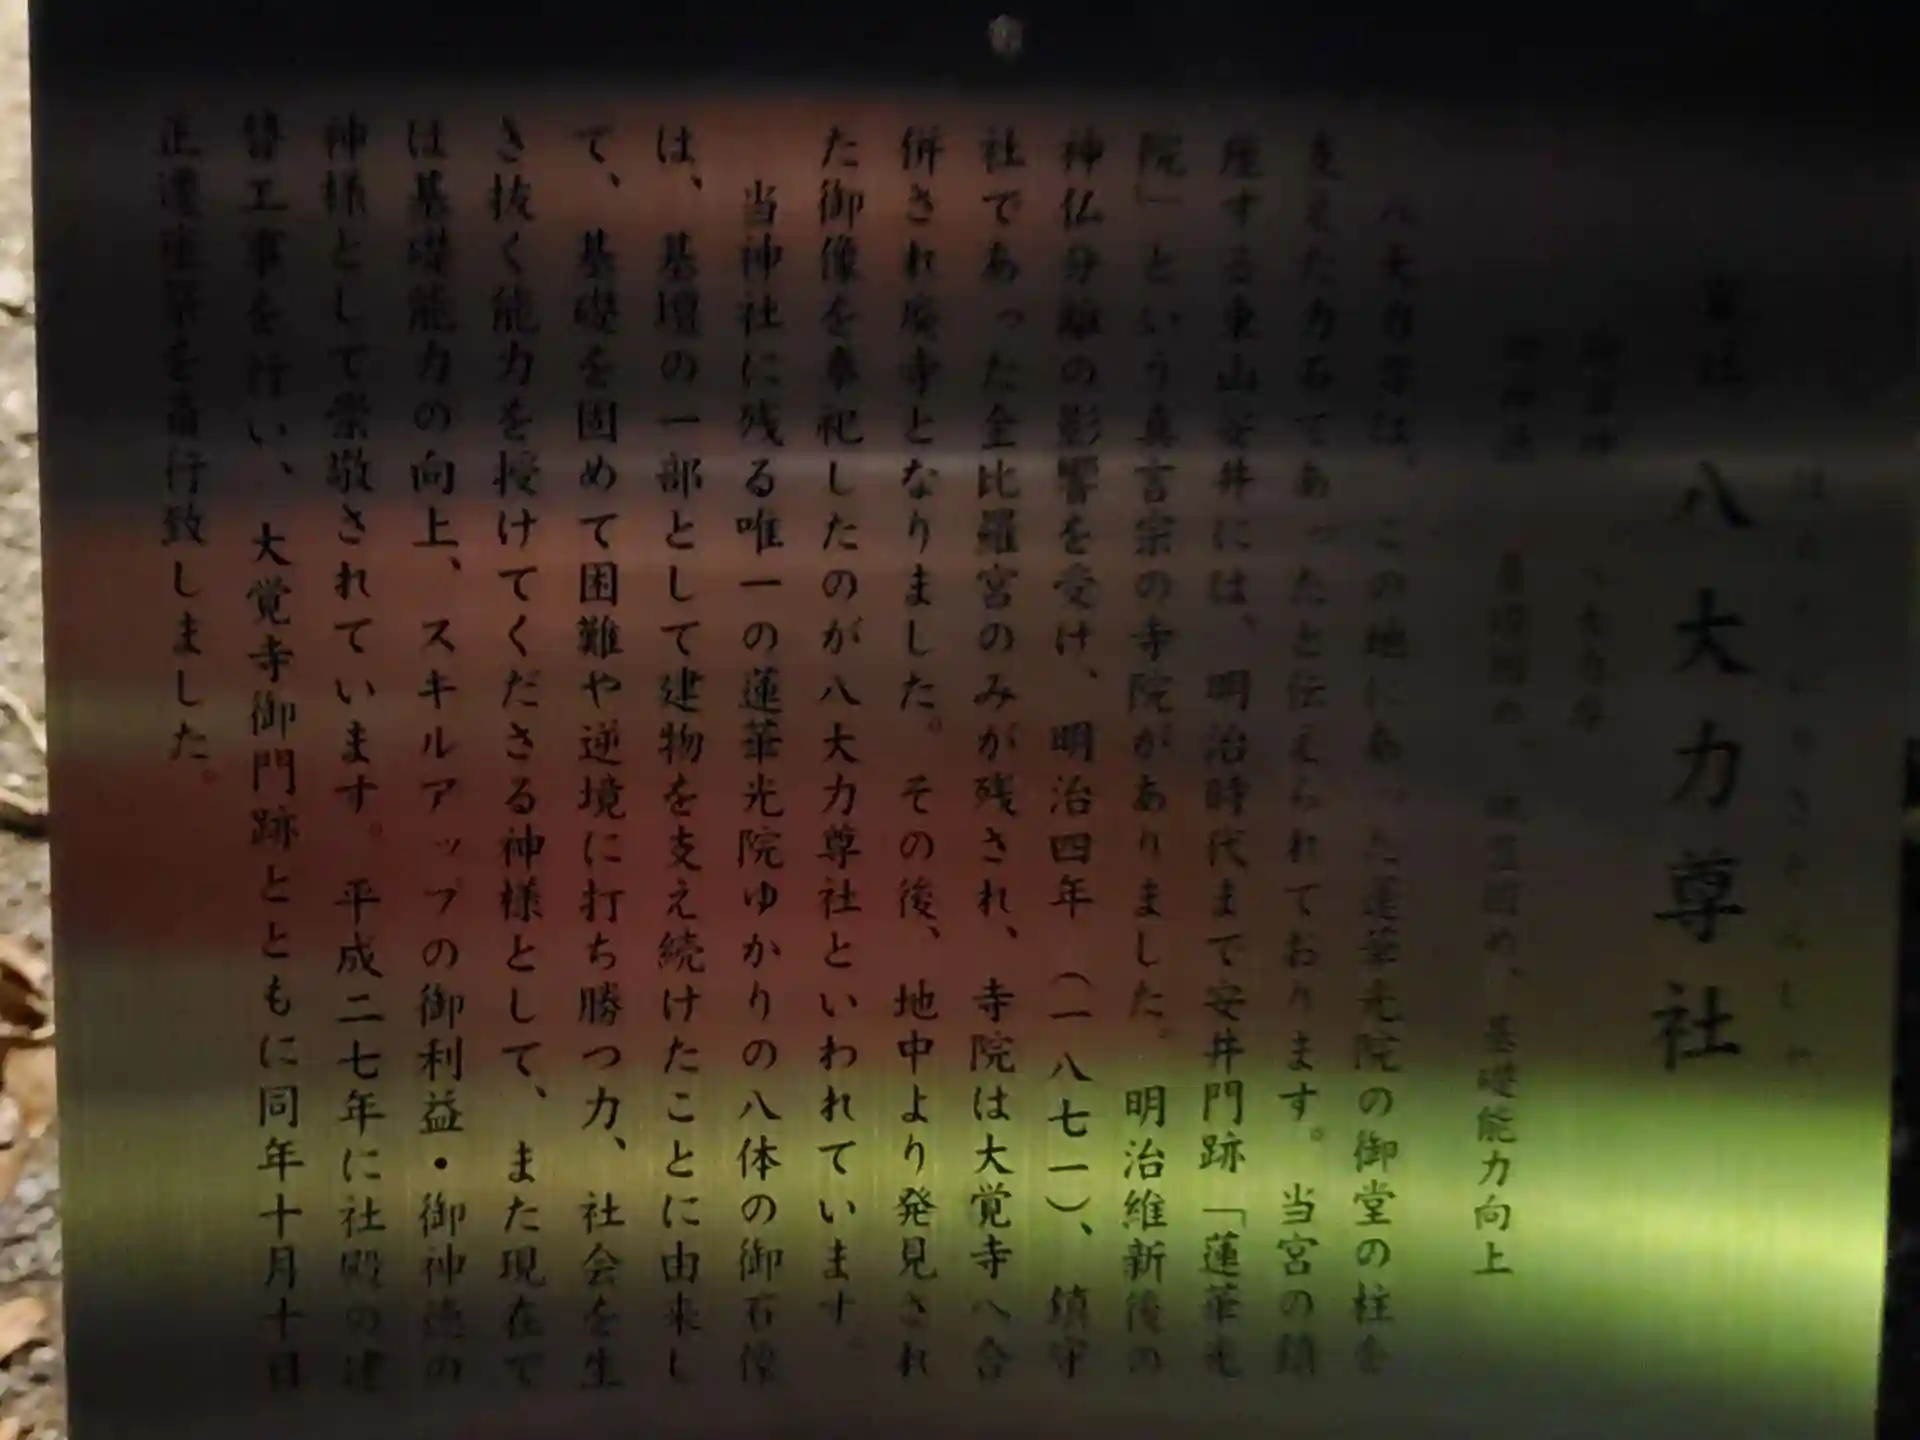 はちだいりきそんしゃ
末社 八大力尊社
御祭神 八大力尊
御神徳 身辺固め、地盤固め、基礎能力向上
八大力尊は、この地にあった蓮華光院の御堂の柱を
支えた力石であったと伝えられております。当宮の鎮
座する東山安井には、明治時代まで安井門跡「蓮華光
院」という真言宗の寺院がありました。明治維新後の
神仏分離の影響を受け、明治四年（一八七一）、鎮守
社であった金比羅宮のみが残され、寺院は大覚寺へ合
併され廃寺となりました。その後、地中より発見され
た御像を奉祀したのが八大力尊社といわれています。
当神社に残る唯一の蓮華光院ゆかりの八体の御石像
は、基壇の一部として建物を支え続けたことに由来し
て、基礎を固めて困難や逆境に打ち勝つ力、社会を生
き抜く能力を授けてくださる神様として、また現在で
は基礎能力の向上、スキルアップの御利益・御神徳の
神様として崇敬されています。平成二七年に社殿の建
替工事を行い、大覚寺御門跡とともに同年十月十日
正遷座祭を斎行致しました。